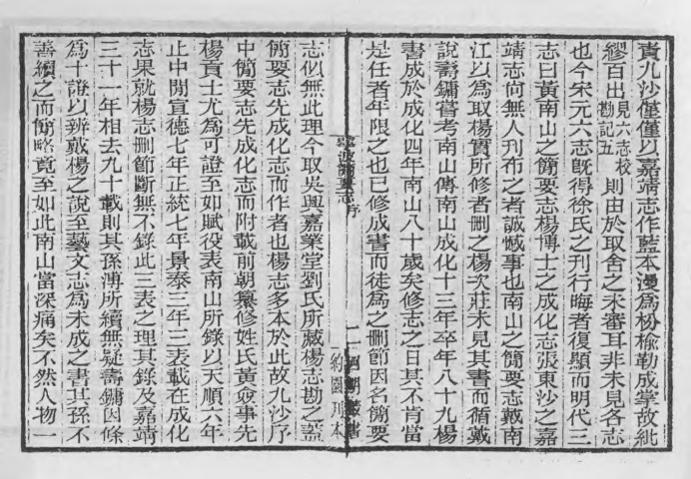 賁九沙僅僅以嘉靖志作藍本漫爲枌楡勒成掌故紕
繆百出見六志校勘記五則由於取舍之未審耳非未見各志
也今宋元六志旣得徐氏之刊行晦者復顯而明代三
志曰黃南山之簡要志楊博士之成化志張東沙之嘉
靖志尙無人刊布之者誠憾事也南山之簡要志戴南
江以爲取楊實所修者刪之楊次莊未見其書而循戴
說壽鏞嘗考南山傳南山成化十三年卒年八十九楊
書成於成化四年南山八十歲矣修志之日其不肯當
是任者年限之也已修成書而徒爲之刪節因名簡要
寧波簡要志序
一
四明叢書
約園刊本
志似無此理今取吳興嘉業堂劉氏所藏楊志勘之蓋
簡要志先成化志而作者也楊志多本於此故九沙序
中簡要志先成化志而附載前朝纂修姓氏黃僉事先
楊貢士尤爲可證至如賦役表南山所錄以天順六年
止中閒宣德七年正統七年景泰三年三表載在成化
志果就楊志刪節斷無不錄此三表之理其錄及嘉靖
三十一年相去九十載則其孫溥所續無疑壽鏞因條
爲十證以辨戴楊之說至藝文志爲未成之書其孫不
善續之而簡略竟至如此南山當深痛矣不然人物一